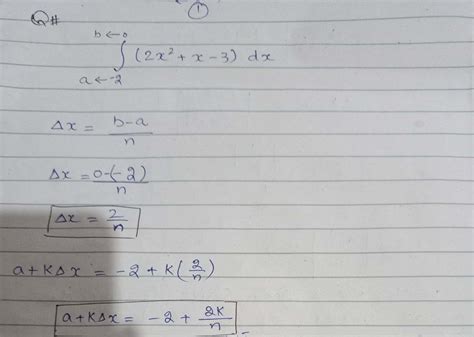 ①
Q#
b←0
∫ (2x² + x - 3) dx
a←-2
Δx = b-a/n
Δx = 0-(-2)/n
Δx = 2/n
a+KΔx = -2 + K(2/n)
a+KΔx = -2 + 2K/n